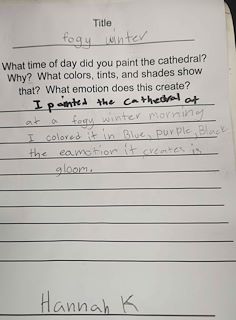 Title
fogy winter
What time of day did you paint the cathedral?
Why? What colors, tints, and shades show
that? What emotion does this create?
I painted the cathedral at
at a fogy winter morning
I colored it in Blue, purple, Black
the eamotion it creates is
gloom.
Hannah K